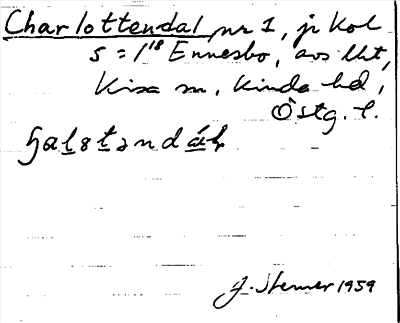 Charlottendal nr 1, jr Kol
s = 1/8 Ennesbo, avs lht,
Kisa sn, Kinda hd,
Östg. l.
J. Stemer 1959